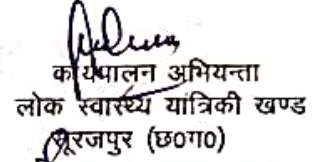 कार्यपालन अभियन्ता
लोक स्वास्थ्य यांत्रिकी खण्ड
सूरजपुर (छ0ग0)